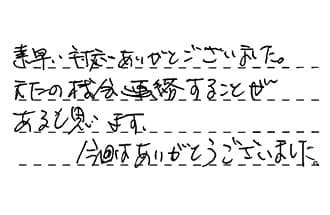 素早い対応ありがとございました。
またの機会連絡することが
あると思います。
今回はありがとうございました。